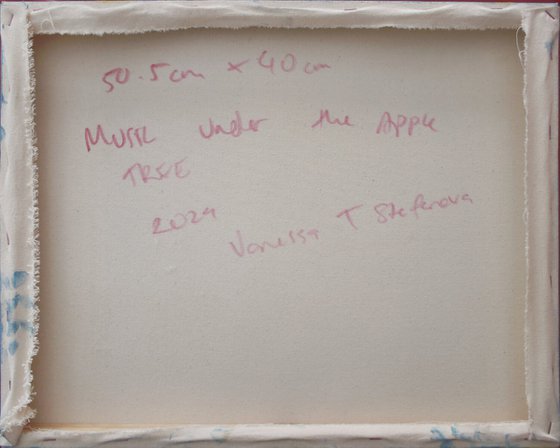 50.5cm x 40cm
Music under the Apple
TREE
2024
Vanessa T Stefanova